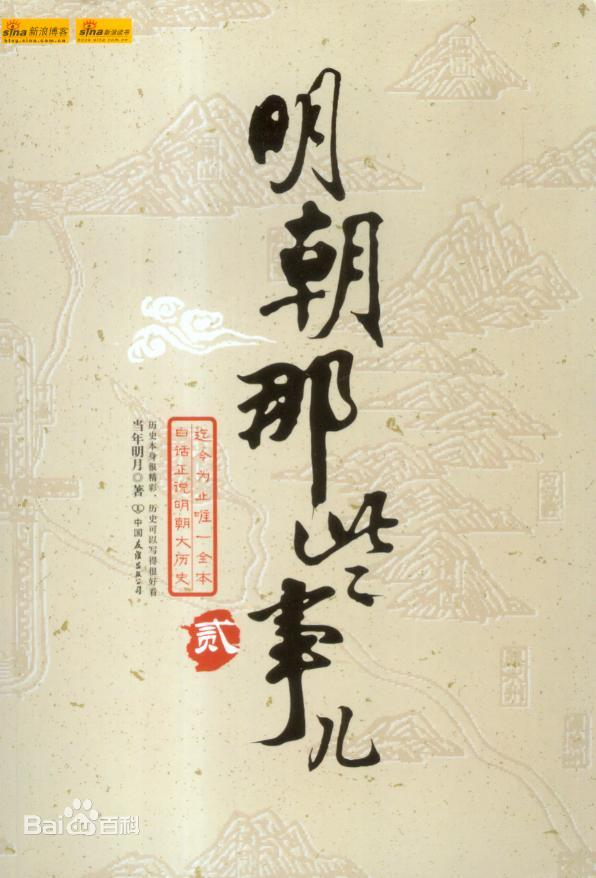 sina新浪博客
blog.sina.com.cn
sina新浪读书
book.sina.com.cn
明朝那些事儿
迄今为止唯一全本
白话正说明朝大历史
贰
历史本身很精彩，历史可以写得很好看
当年明月◎著
中国友谊出版公司
Bai百科